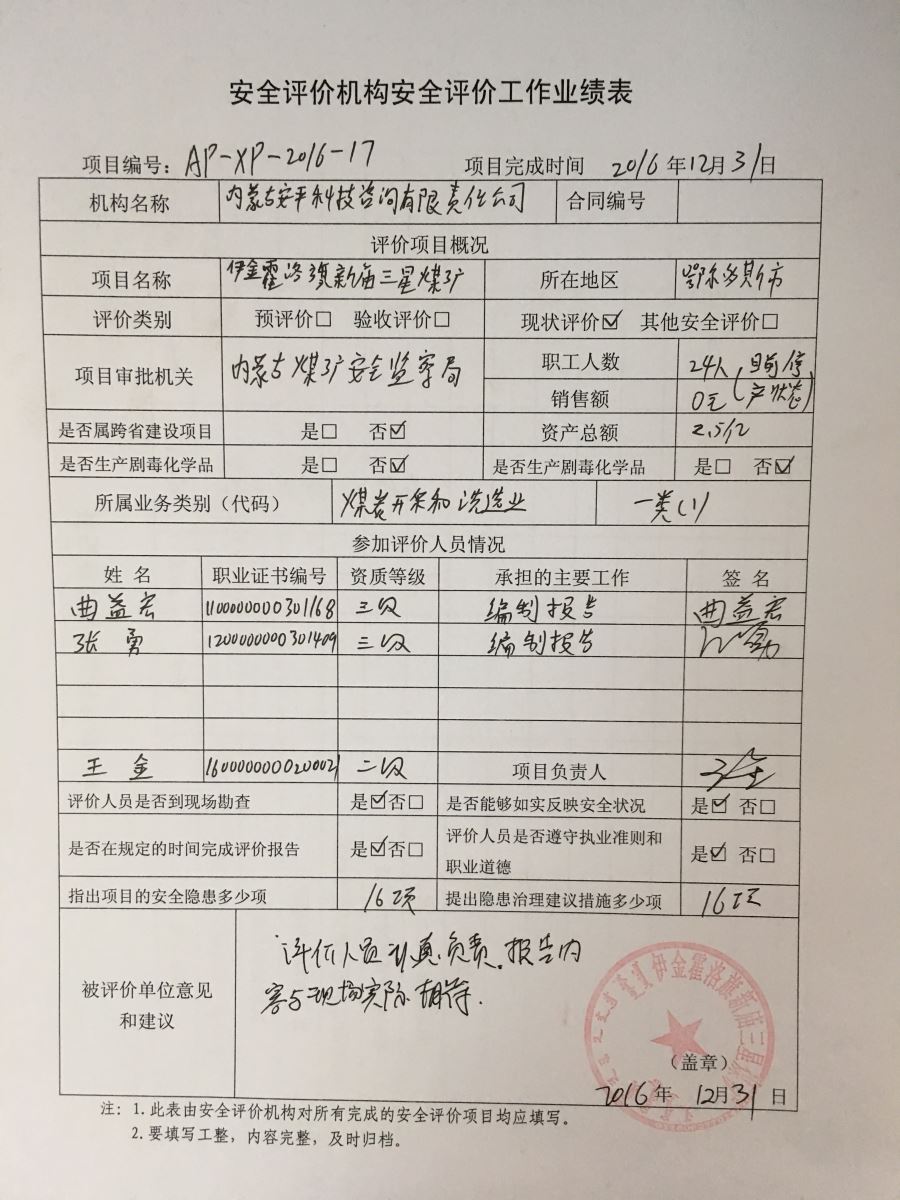 安全评价机构安全评价工作业绩表
项目编号：AP-XP-2016-17 项目完成时间 2016年12月31日
机构名称 内蒙古安平科技咨询有限责任公司 合同编号
评价项目概况
项目名称 伊金霍洛旗新庙三星煤矿 所在地区 鄂尔多斯市
评价类别 预评价□ 验收评价□ 现状评价☑ 其他安全评价□
项目审批机关 内蒙古煤矿安全监察局 职工人数 24人(目前停
销售额 0元 产状态)
是否属跨省建设项目 是□ 否☑ 资产总额 2.5亿
是否生产剧毒化学品 是□ 否☑ 是否生产剧毒化学品 是□ 否☑
所属业务类别（代码） 煤炭开采和洗选业 一类(1)
参加评价人员情况
姓 名 职业证书编号 资质等级 承担的主要工作 签 名
曲益宏 1100000000301168 三级 编制报告 曲益宏
张 勇 1200000000301409 三级 编制报告
王 金 1600000000200021 二级 项目负责人 王金
评价人员是否到现场勘查 是☑否□ 是否能够如实反映安全状况 是☑ 否□
是否在规定的时间完成评价报告 是☑否□ 评价人员是否遵守执业准则和
职业道德 是☑ 否□
指出项目的安全隐患多少项 16项 提出隐患治理建议措施多少项 16项
被评价单位意见
和建议
评价人员认真负责，报告内
容与现场实际相符.
伊金霍洛旗新庙三星
（盖章）
2016年 12月31日
注：1.此表由安全评价机构对所有完成的安全评价项目均应填写。
2.要填写工整，内容完整，及时归档。